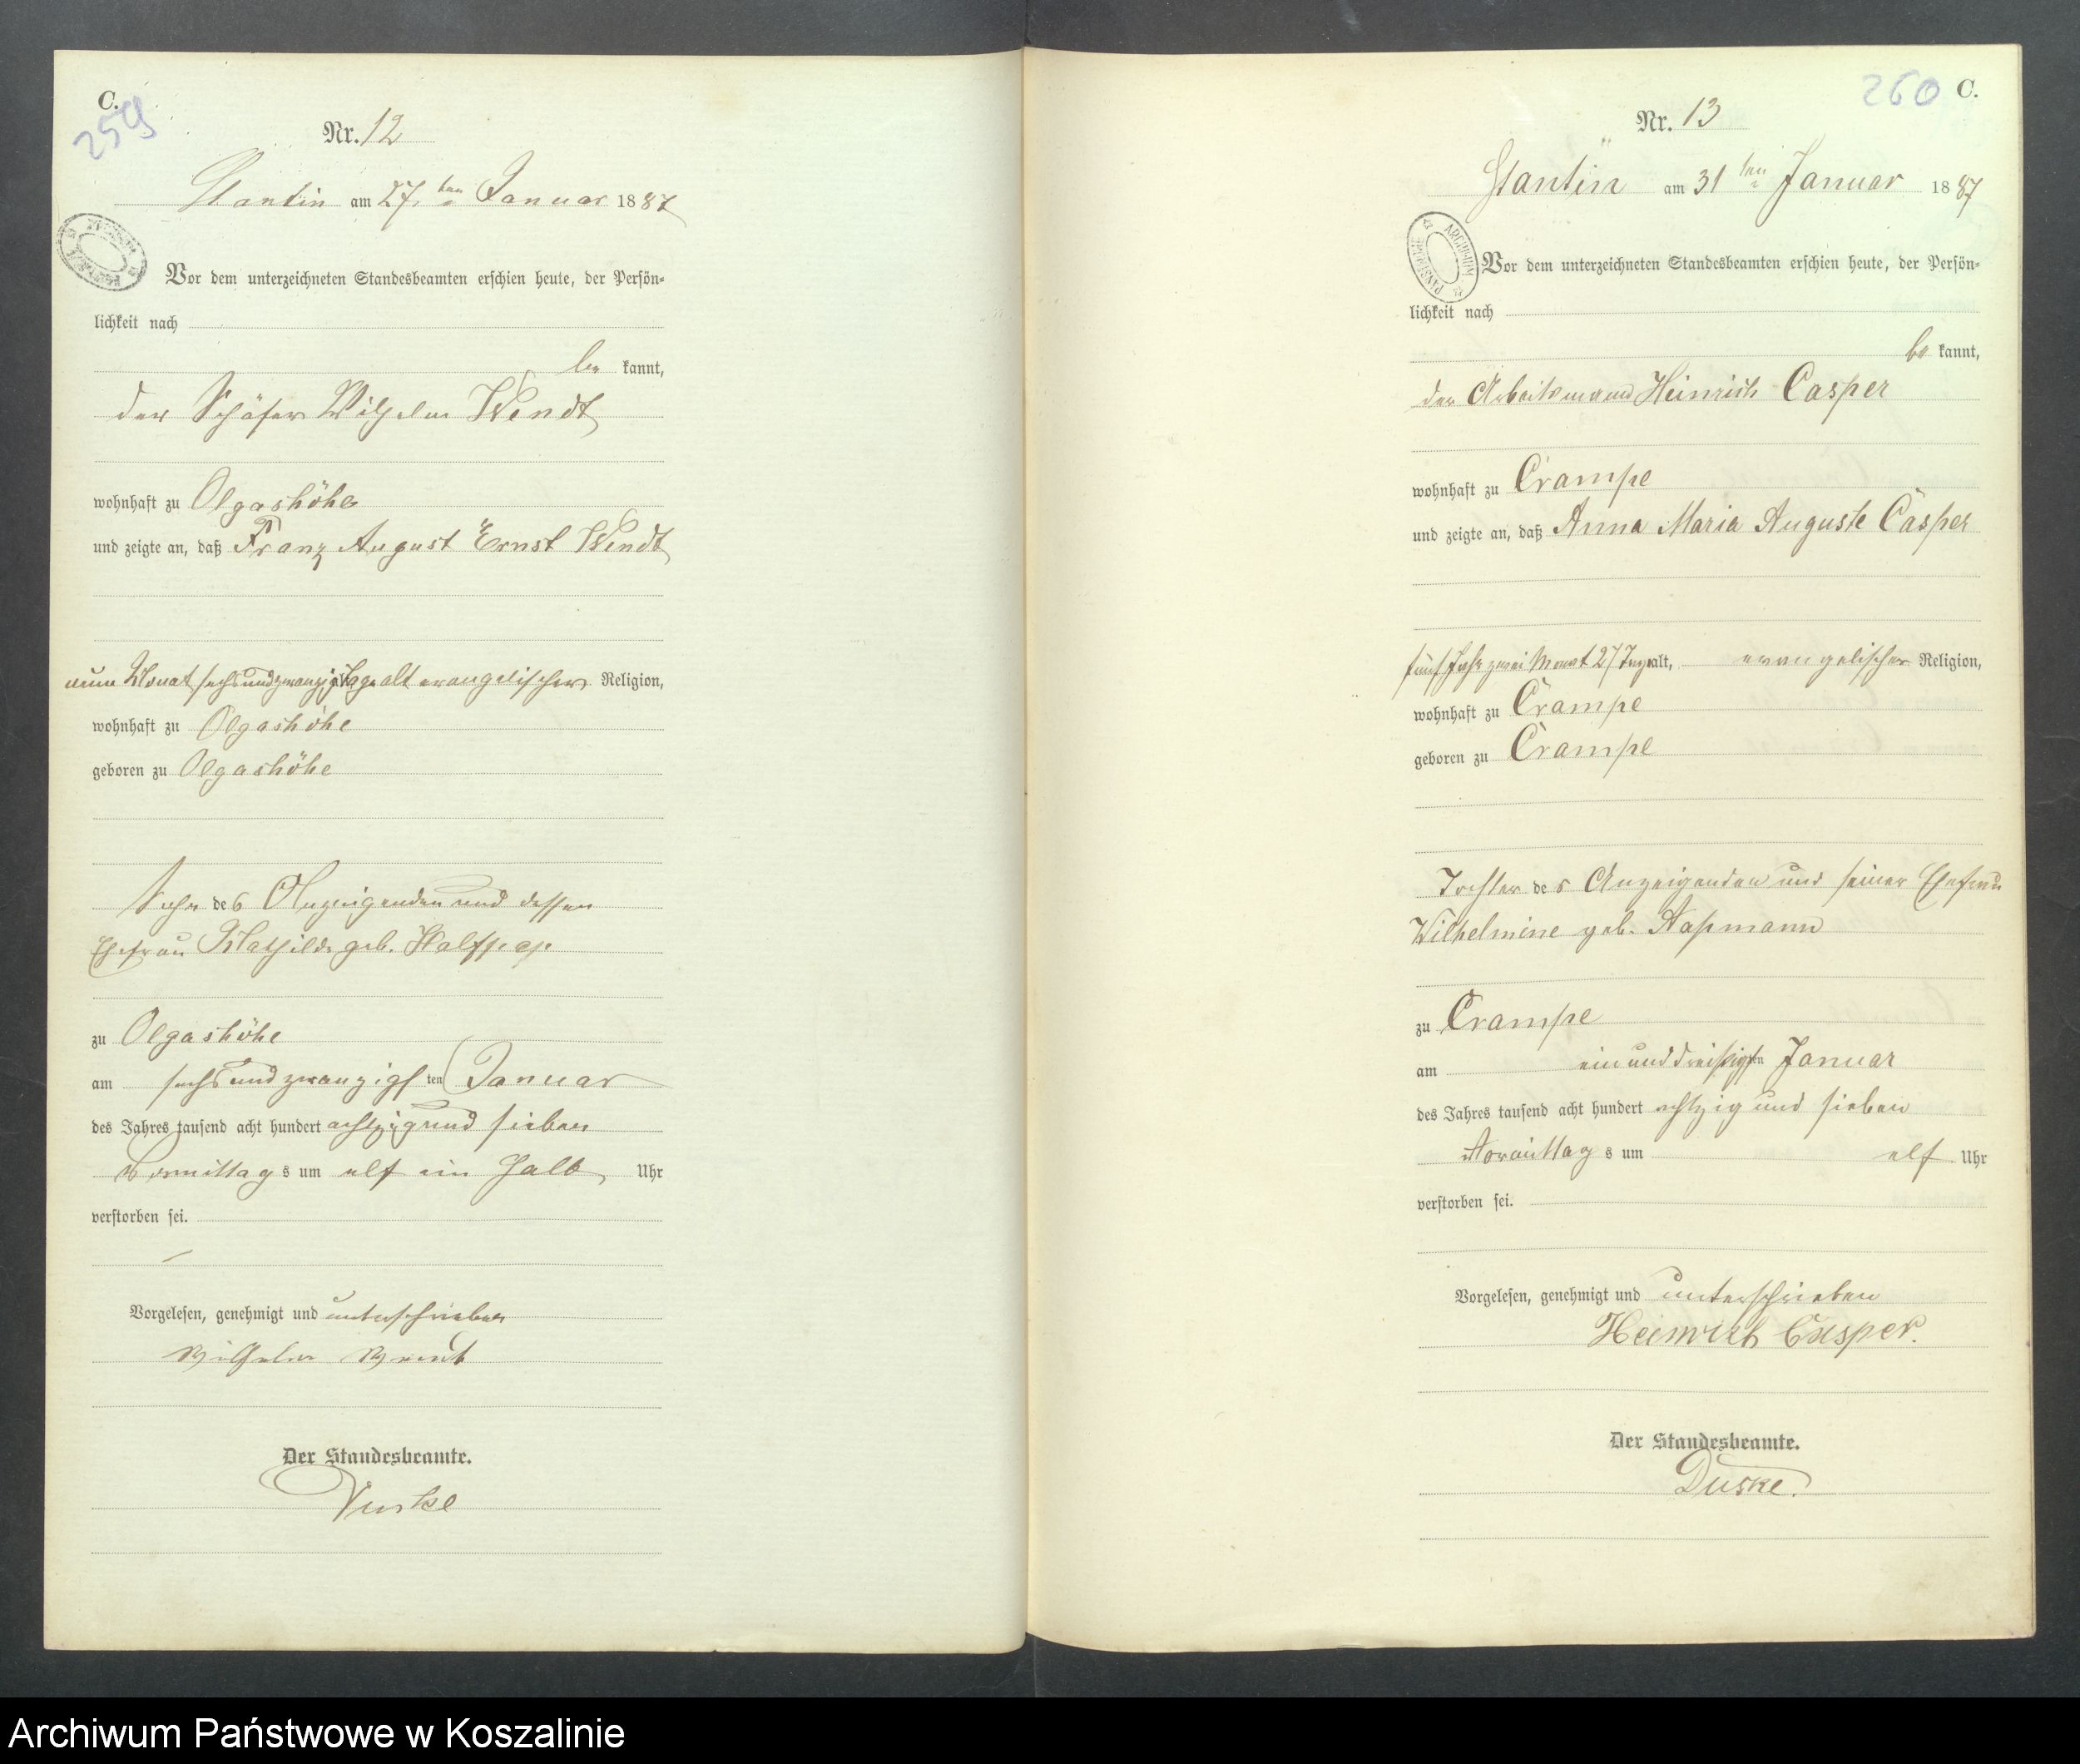 C.
259
Nr. 12
Stantin am 27. ten Januar 1887
Vor dem unterzeichneten Standesbeamten erschien heute, der Persön-
lichkeit nach
be kannt,
der Schäfer Wilhelm Wendt
wohnhaft zu Olgashöhe
und zeigte an, daß Franz August Ernst Wendt
neun Monat sechsundzwanzig Tage alt evangelischer Religion,
wohnhaft zu Olgashöhe
geboren zu Olgashöhe
Sohn des Anzeigenden und dessen
Ehefrau Mathilde geb. Halfpap
zu Olgashöhe
am sechsundzwanzigsten Januar
des Jahres tausend acht hundert achtzig und sieben
Vormittags um elf ein halb Uhr
verstorben sei.
Vorgelesen, genehmigt und unterschrieben
Wilhelm Wendt
Der Standesbeamte.
Duske
260 C.
Nr. 13
Stantin am 31 ten Januar 1887
ARCHIWUM PAŃSTWOWE
Vor dem unterzeichneten Standesbeamten erschien heute, der Persön-
lichkeit nach
be kannt,
der Arbeitsmann Heinrich Casper
wohnhaft zu Crampe
und zeigte an, daß Anna Maria Auguste Casper
fünf Jahr zwei Monat 27 Tage alt, evangelischer Religion,
wohnhaft zu Crampe
geboren zu Crampe
Tochter des Anzeigenden und seiner Ehefrau
Wilhelmine geb.
zu Crampe
am einunddreißigsten Januar
des Jahres tausend acht hundert achtzig und sieben
Vormittags um elf Uhr
verstorben sei.
Vorgelesen, genehmigt und unterschrieben
Heinrich Casper.
Der Standesbeamte.
Duske.
Archiwum Państwowe w Koszalinie